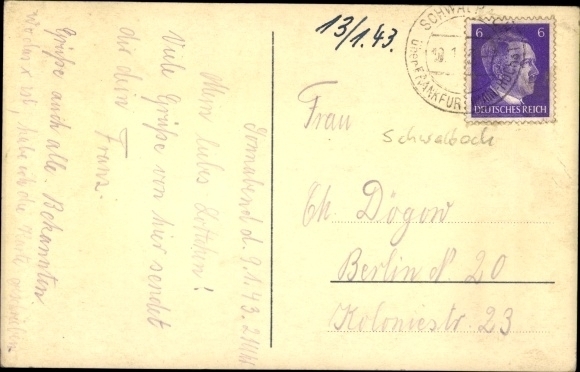 13/1.43.
SCHWALBACH
ÜBER FRANKFURT
6 6
DEUTSCHES REICH
Schwalbach
Frau
Ch. Dögow
Berlin N 20
Koloniestr. 23
Sonnabend d. 9.1.43.
Mein liebes Lottchen!
Viele Grüße von hier sendet
dir dein
Franz.
Grüße auch alle Bekannten.
habe ich die Karte